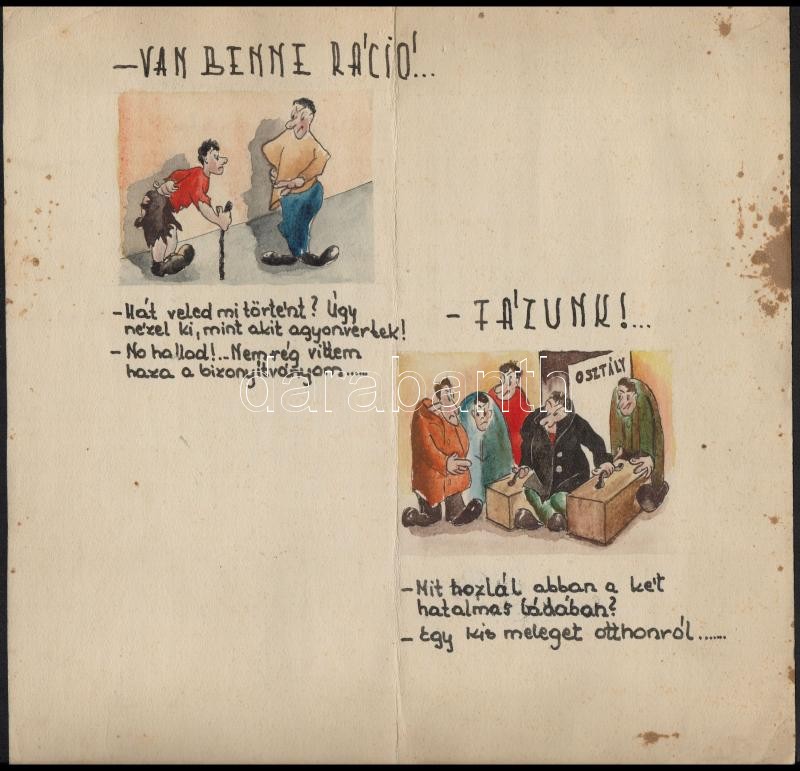 – VAN BENNE RÁCIÓ!...
– Hát veled mi történt? Úgy
nézel ki, mint akit agyonvertek!
– No hallod!.. Nemrég vittem
haza a bizonyítványom.....
– FÁZUNK!...
OSZTÁLY
darabanth
– Mit hoztál abban a két
hatalmas ládában?
– Egy kis meleget otthonról.......